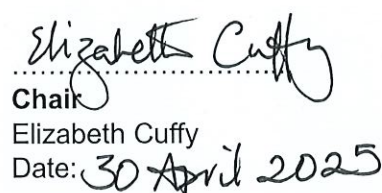 Elizabeth Cuffy
Chair
Elizabeth Cuffy
Date: 30 April 2025